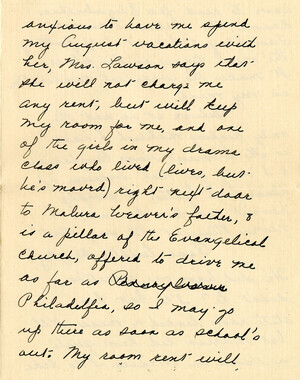 anxious to have me spend
my August vacations with
her, Mrs. Lawson says that
she will not charge me
any rent, but will keep
my room for me, and one
of the girls in my drama
class who lived (lives, but
he's moved) right next door
to Weaver's father, &
is a pillar of the Evangelical
church, offered to drive me
as far as
Philadelfia, so I may go
up there as soon as school's
out. My room rent will